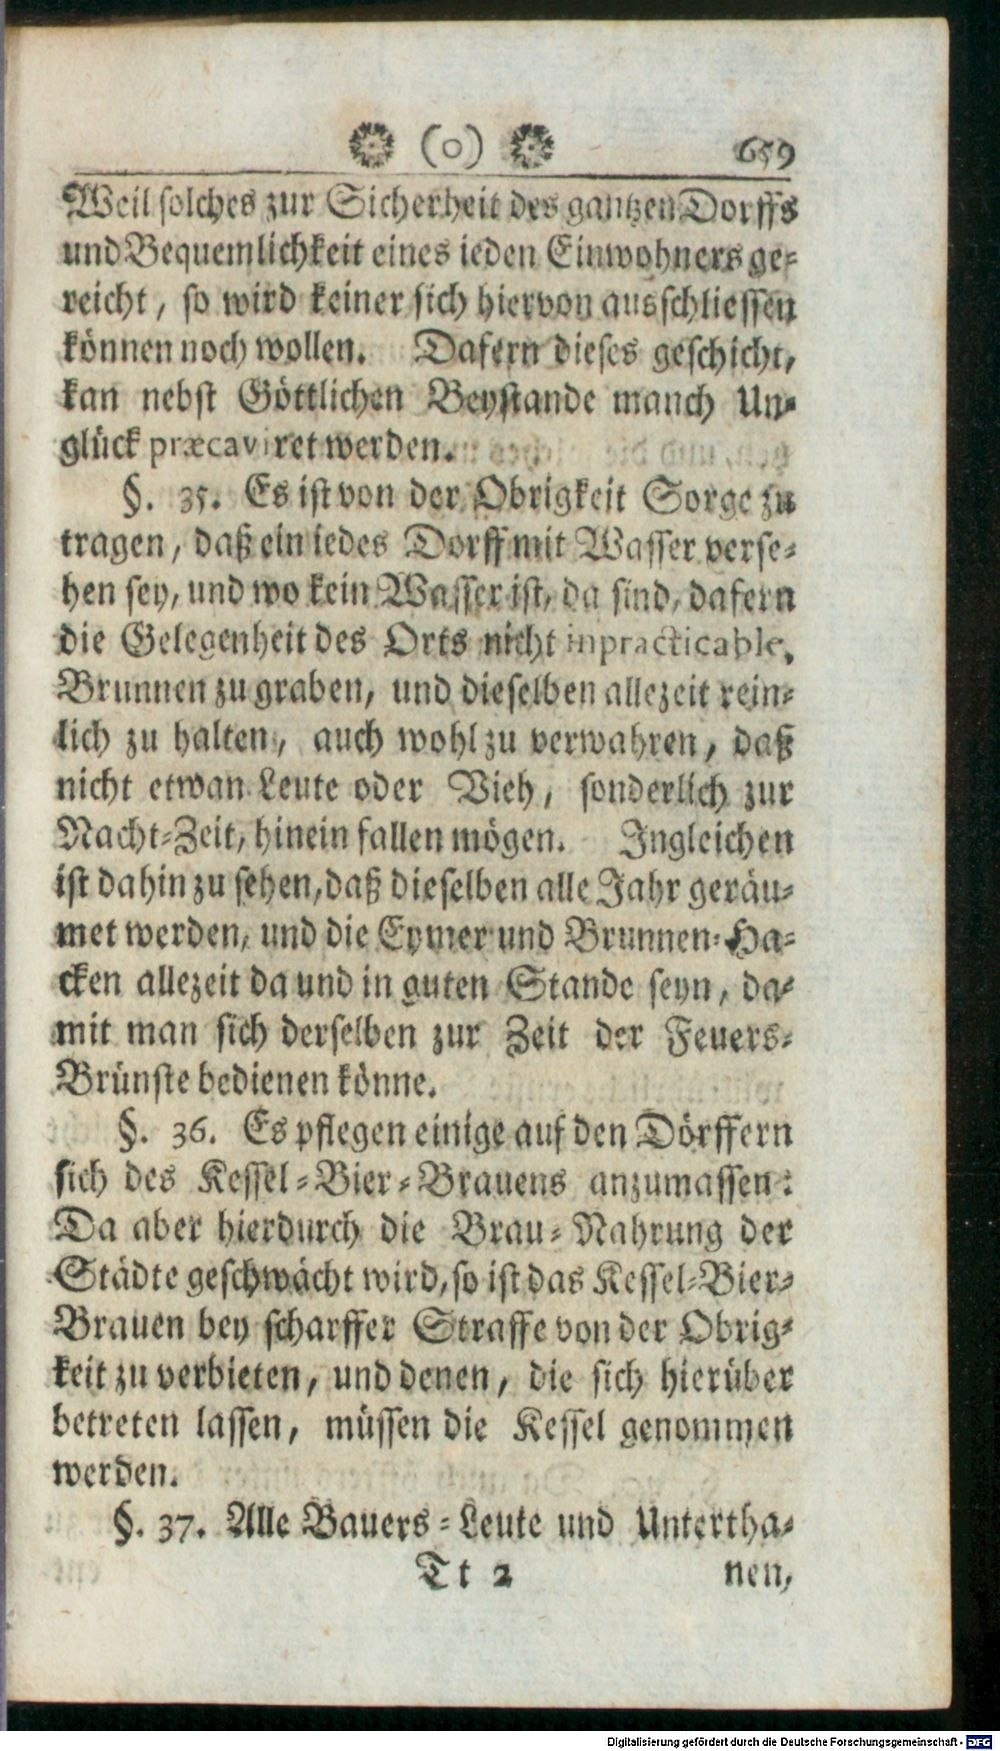 (o) 659
Weil solches zur Sicherheit des gantzen Dorffs
und Bequemlichkeit eines ieden Einwohners ge-
reicht, so wird keiner sich hiervon ausschliessen
können noch wollen. Dafern dieses geschicht,
kan nebst Göttlichen Beystande manch Un-
glück præcaviret werden.
§. 35. Es ist von der Obrigkeit Sorge zu
tragen, daß ein iedes Dorff mit Wasser verse-
hen sey, und wo kein Wasser ist, da sind, dafern
die Gelegenheit des Orts nicht inpracticable,
Brunnen zu graben, und dieselben allezeit rein-
lich zu halten, auch wohl zu verwahren, daß
nicht etwan Leute oder Vieh, sonderlich zur
Nacht-Zeit, hinein fallen mögen. Ingleichen
ist dahin zu sehen, daß dieselben alle Jahr geräu-
met werden, und die Eymer und Brunnen-Ha-
cken allezeit da und in guten Stande seyn, da-
mit man sich derselben zur Zeit der Feuers-
Brünste bedienen könne.
§. 36. Es pflegen einige auf den Dörffern
sich des Kessel-Bier-Brauens anzumassen:
Da aber hierdurch die Brau-Nahrung der
Städte geschwächt wird, so ist das Kessel-Bier-
Brauen bey scharffer Straffe von der Obrig-
keit zu verbieten, und denen, die sich hierüber
betreten lassen, müssen die Kessel genommen
werden.
§. 37. Alle Bauers-Leute und Untertha-
Tt 2 nen,
Digitalisierung gefördert durch die Deutsche Forschungsgemeinschaft - DFG